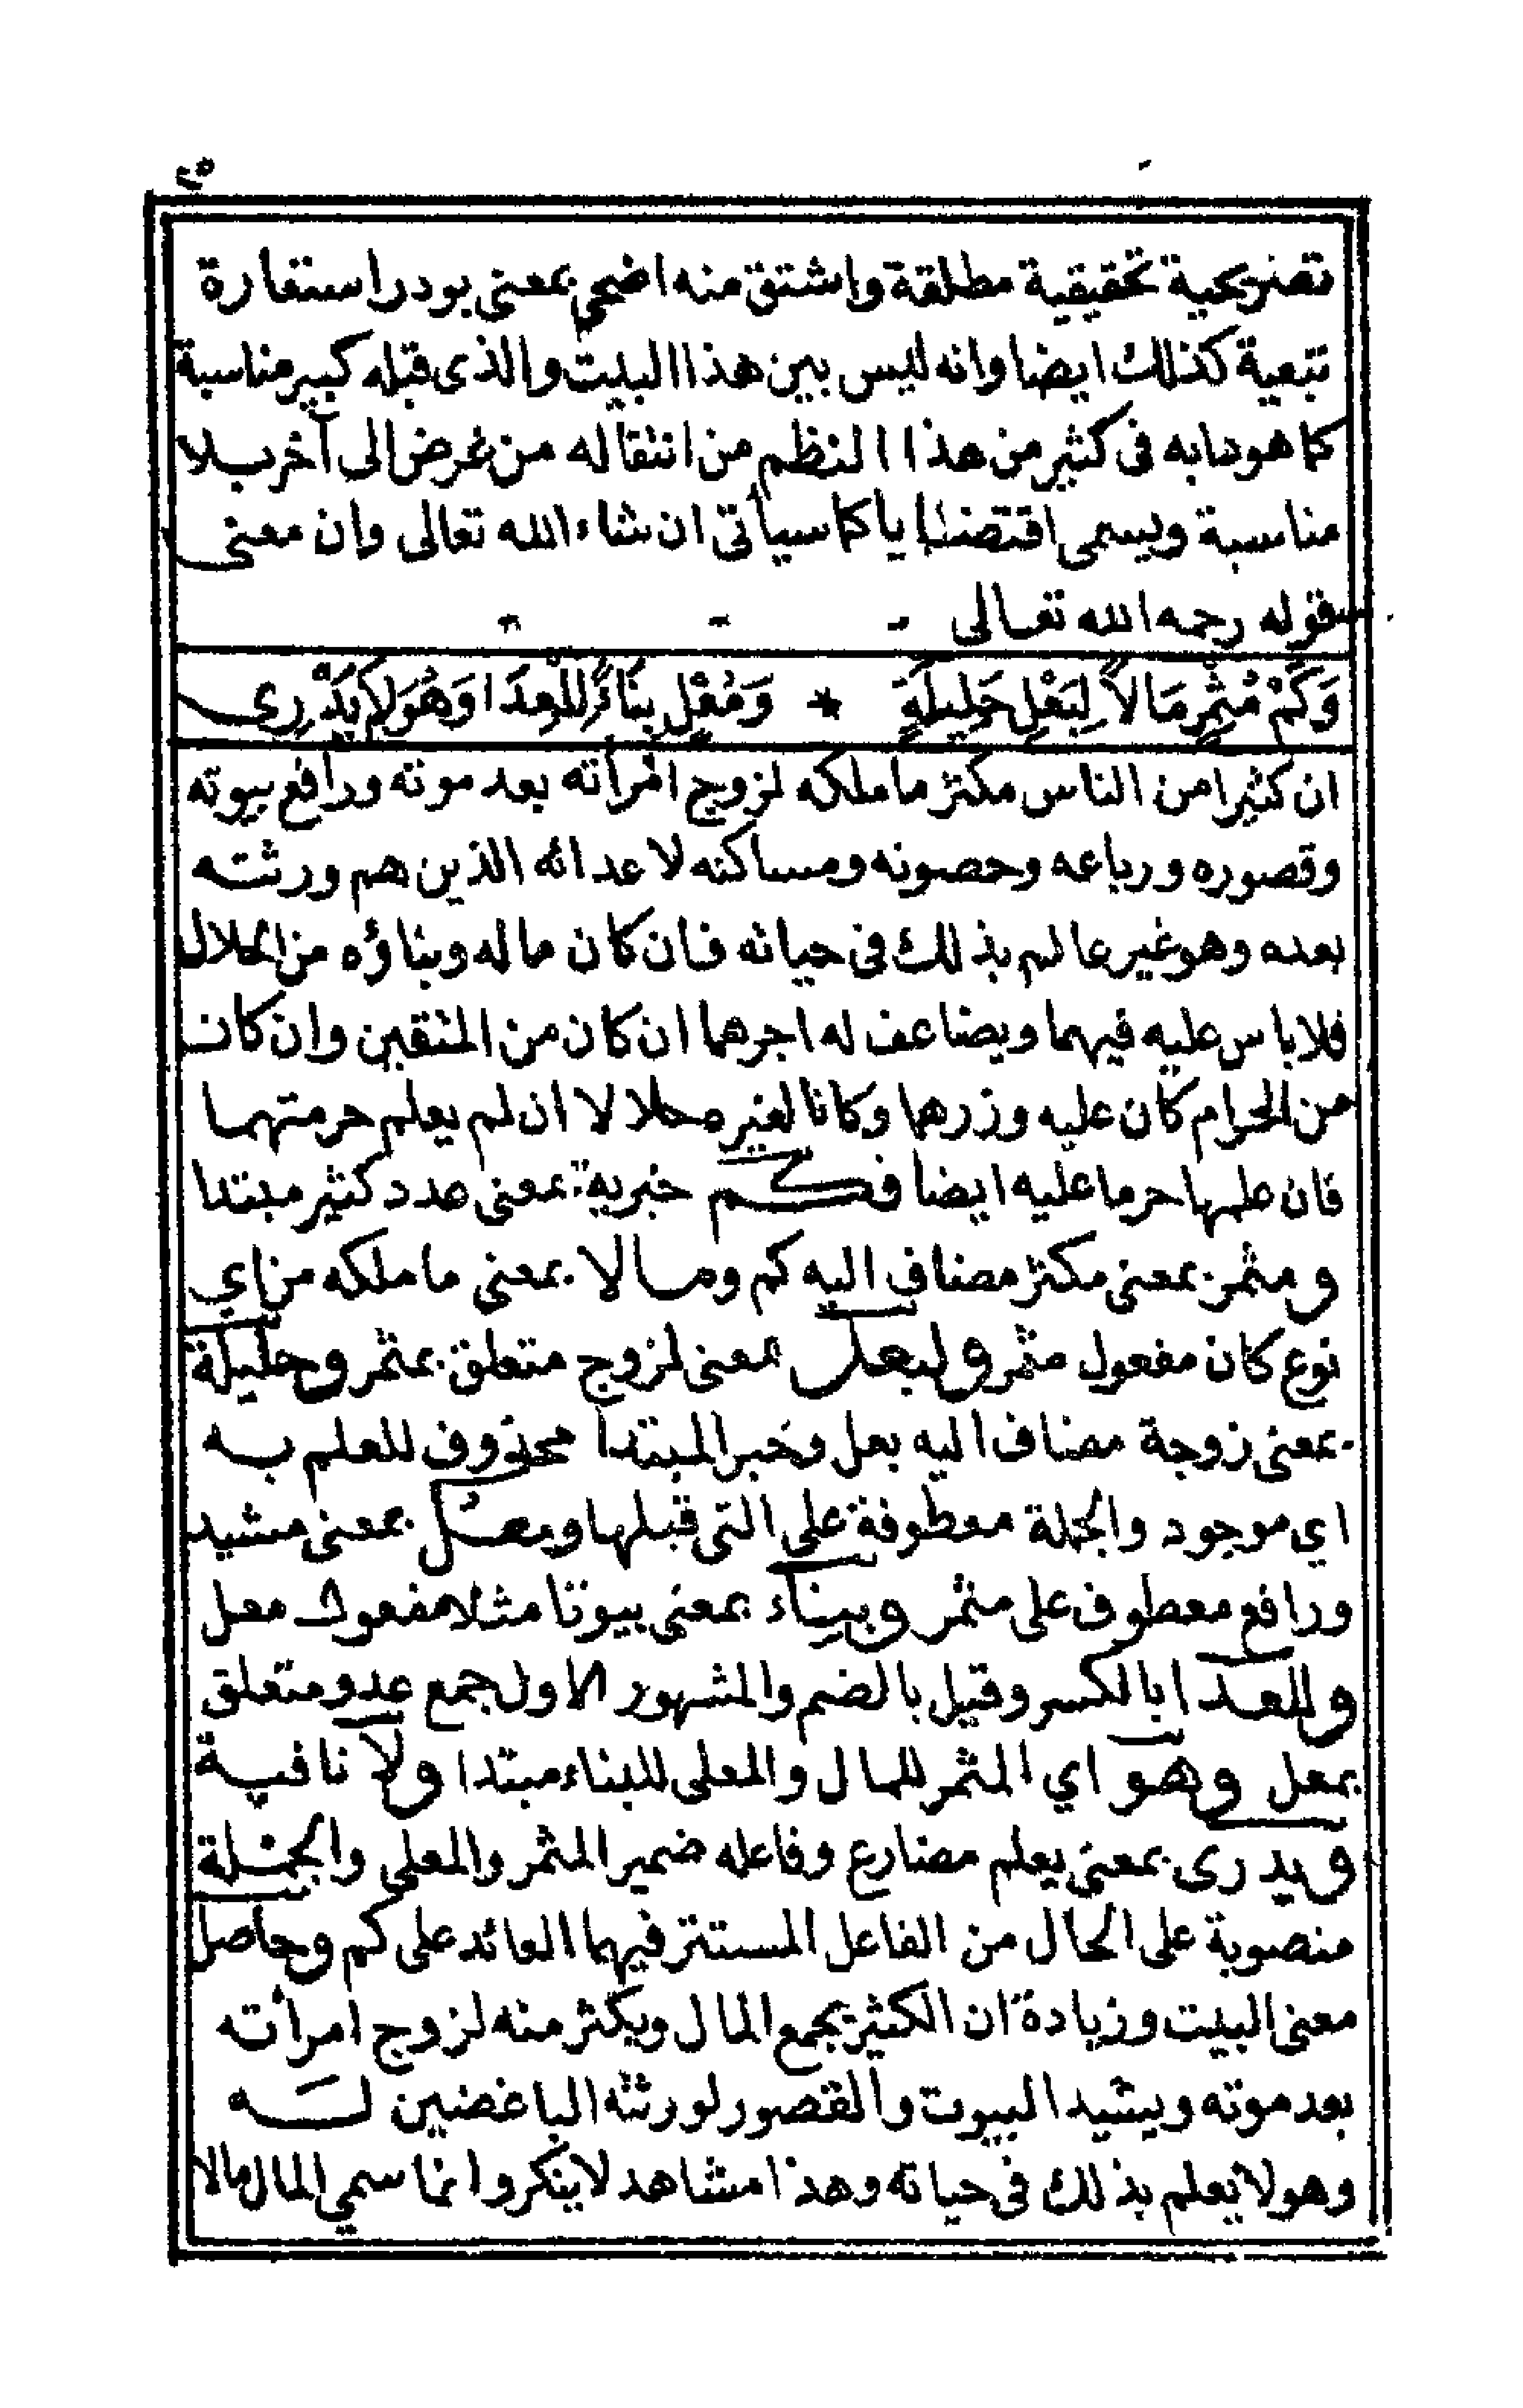 ٤٥
تصريحية تحقيقية مطلقة واشتق منه اضحى بمعنى بودر استعارة
تبعية كذلك ايضا وانه ليس بين هذا البيت والذى قبله كبير مناسبة
كما هو دابه فى كثير من هذا النظم من انتقاله من غرض الى آخر بلا
مناسبة ويسمى اقتضابا كما سيأتى ان شاء الله تعالى وان معنى
قوله رحمه الله تعالى
وَكَمْ مُثْمِرٍ مَالاً لِبَعْلِ حَلِيلَةٍ * وَمُعْلٍ بِنَاءً لِلْعِدَا وَهُوَ لَا يَدْرِي
ان كثيرا من الناس مكثر ما ملكه لزوج امرأته بعد موته ورافع بيوته
وقصوره ورباعه وحصونه ومساكنه لاعدائه الذين هم ورثته
بعده وهو غير عالم بذلك فى حياته فان كان ماله وبناؤه من الحلال
فلا باس عليه فيهما ويضاعف له اجرهما ان كان من المتقين وان كان
من الحرام كان عليه وزرهما وكانا لغيره حلالا ان لم يعلم حرمتهما
فان علمها حرما عليه ايضا فكم خبرية بمعنى عدد كثير مبتدا
ومثمر بمعنى مكثر مضاف اليه كم ومالا بمعنى ما ملكه من اي
نوع كان مفعول مثمر ولبعل بمعنى لزوج متعلق بمثمر وحليلة
بمعنى زوجة مضاف اليه بعل وخبر المبتدا محذوف للعلم به
اي موجود والجملة معطوفة على التى قبلها ومعل بمعنى مشيد
ورافع معطوف على مثمر وبناء بمعنى بيوتا مثلا مفعول معل
وللعدا بالكسر وقيل بالضم والمشهور الاول جمع عدو متعلق
بمعل وهو اي المثمر للمال والمعلى للبناء مبتدا ولا نافية
ويدرى بمعنى يعلم مضارع وفاعله ضمير المثمر والمعلى والجملة
منصوبة على الحال من الفاعل المستتر فيهما العائد على كم وحاصل
معنى البيت وزيادة ان الكثير يجمع المال ويكثر منه لزوج امرأته
بعد موته ويشيد البيوت والقصور لورثته الباغضين له
وهو لا يعلم بذلك فى حياته وهذا مشاهد لا ينكر وانما سمي المال مالا